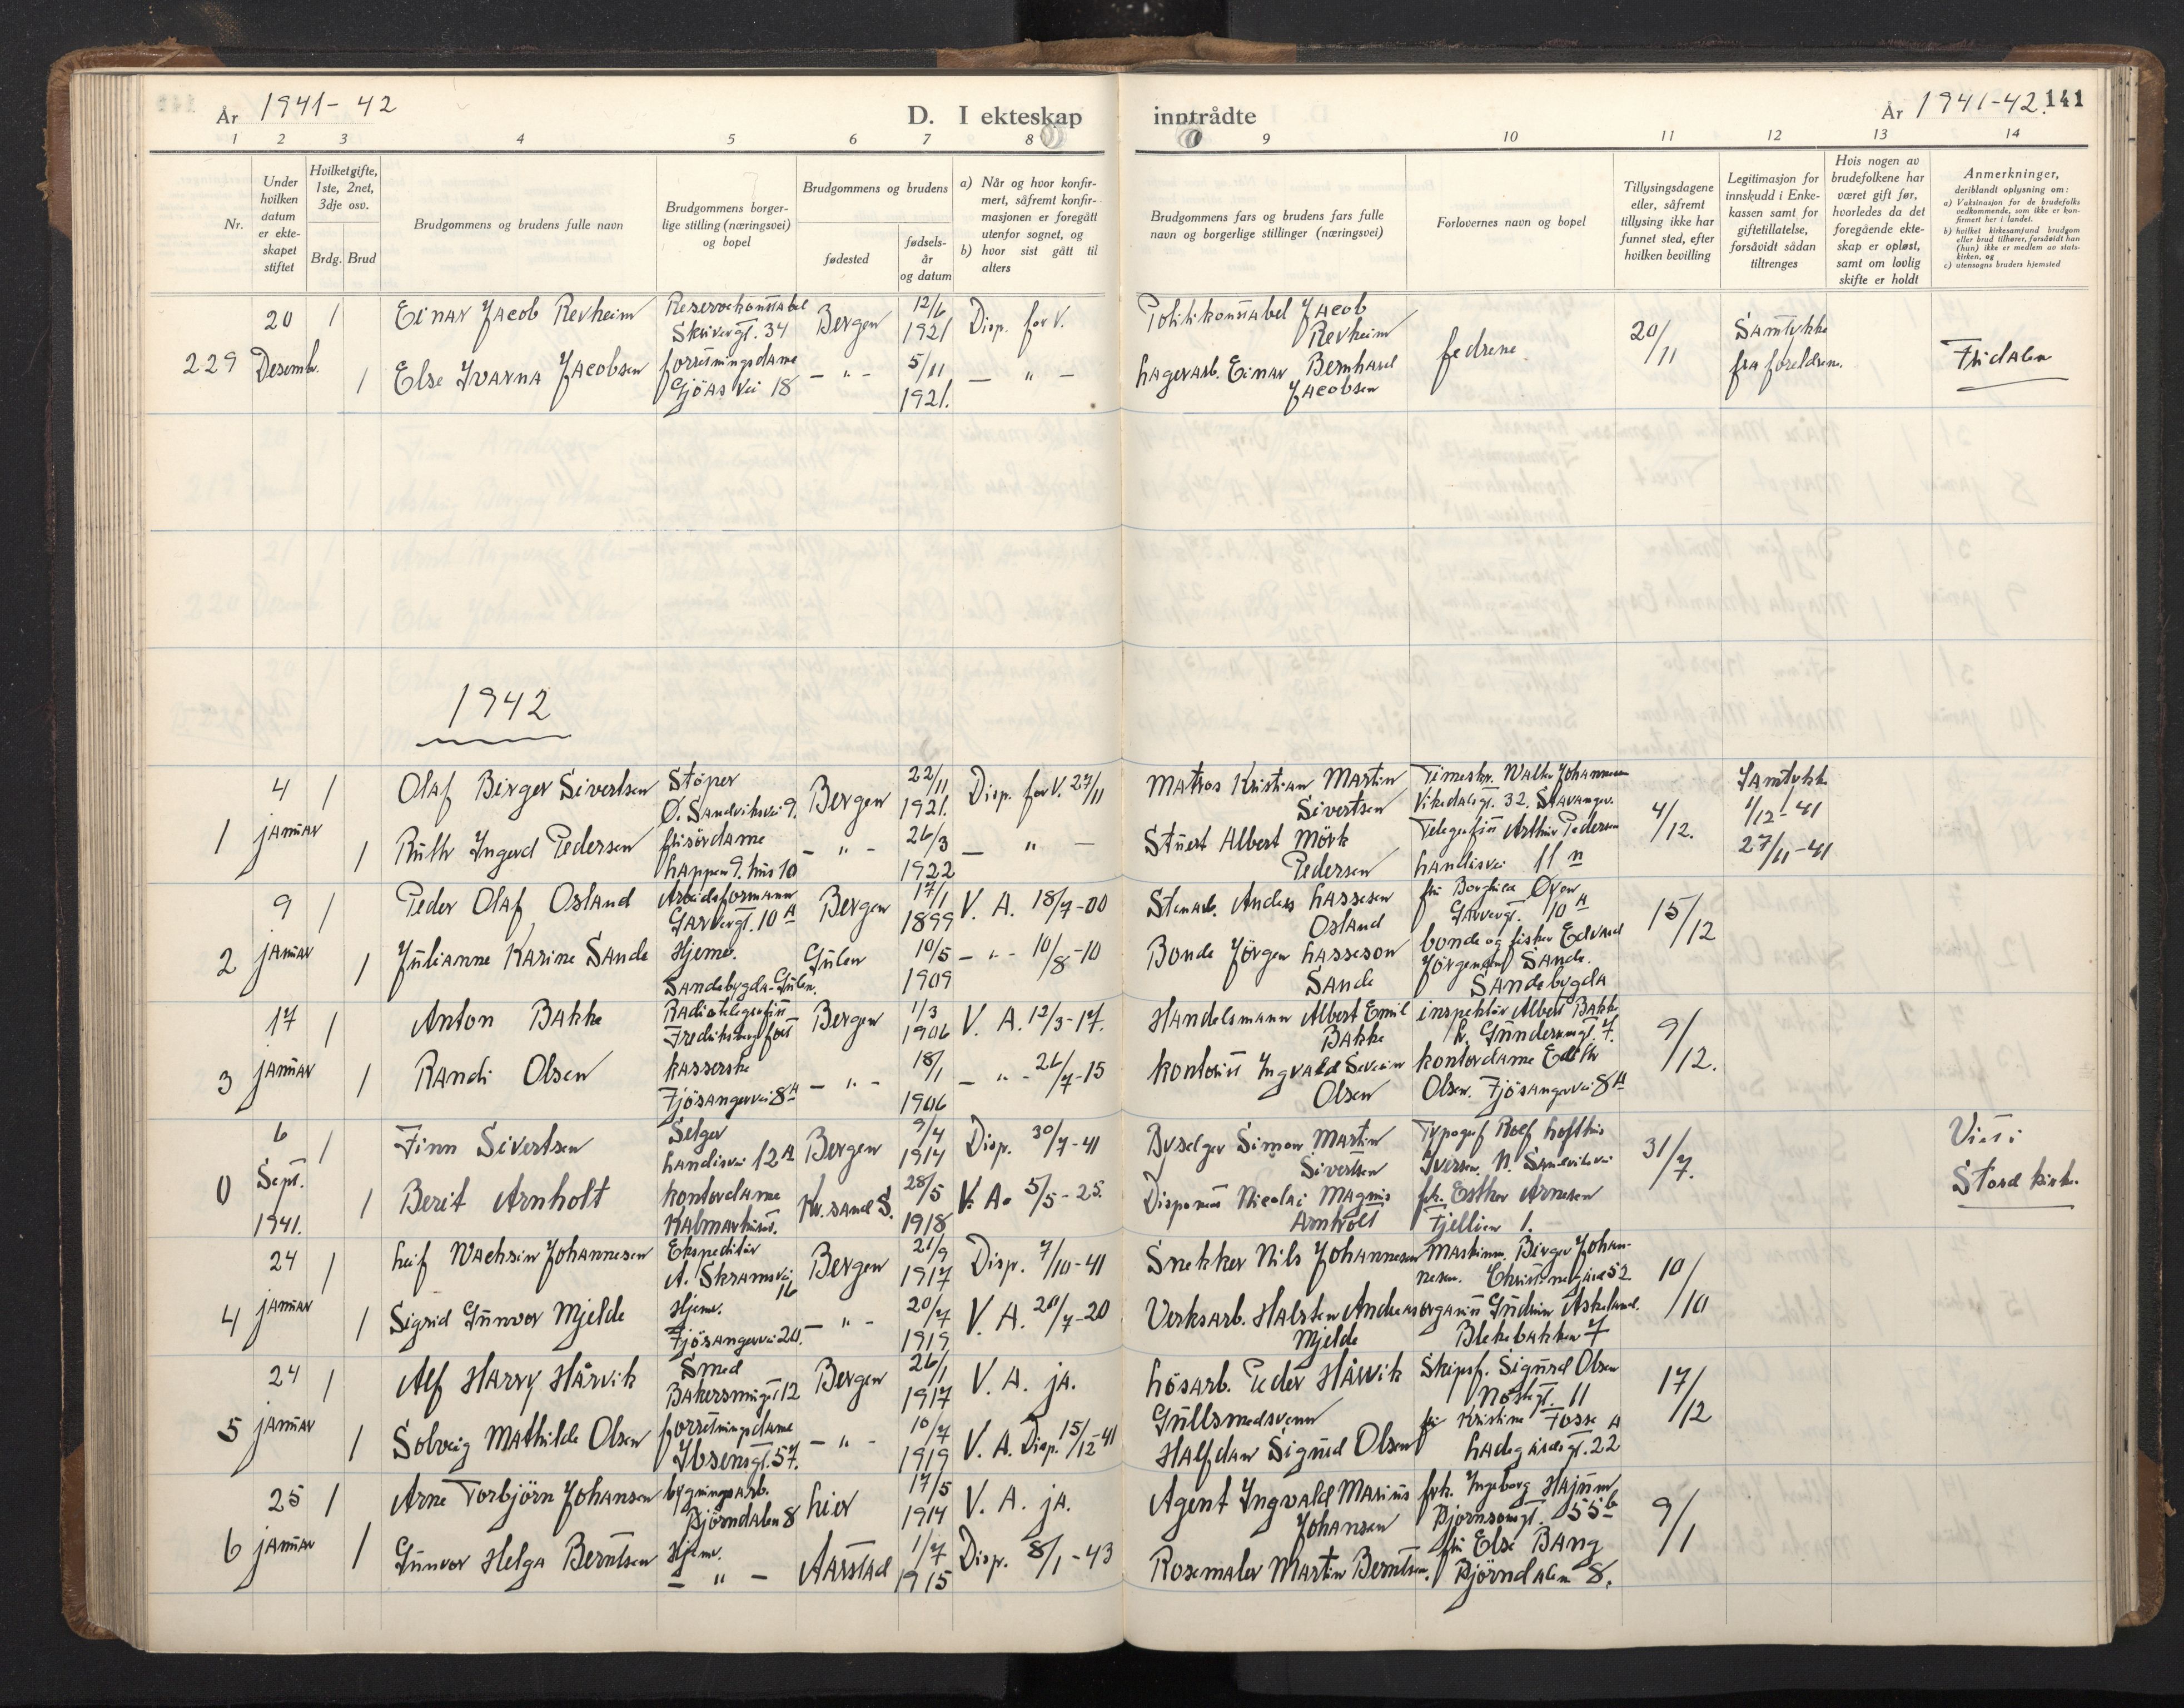 År 1941-42 D. I ekteskap inntrådte År 1941-42. 141
1 2 3 4 5 6 7 8 9 10 11 12 13 14
Nr.
Under hvilken datum er ekteskapet stiftet
Hvilket gifte, 1ste, 2net, 3dje osv.
Brdg. Brud
Brudgommens og brudens fulle navn
Brudgommens borgerlige stilling (næringsvei) og bopel
Brudgommens og brudens
fødested
fødselsår og datum
a) Når og hvor konfirmert, såfremt konfirmasjonen er foregått utenfor sognet, og
b) hvor sist gått til alters
Brudgommens fars og brudens fars fulle navn og borgerlige stillinger (næringsvei)
Forlovernes navn og bopel
Tillysingsdagene eller, såfremt tillysing ikke har funnet sted, efter hvilken bevilling
Legitimasjon for innskudd i Enkekassen samt for giftetillatelse, forsåvidt sådan tiltrenges
Hvis nogen av brudefolkene har været gift før, hvorledes da det foregående ekteskap er opløst, samt om lovlig skifte er holdt
Anmerkninger,
deriblandt oplysning om:
a) Vaksinasjon for de brudefolks vedkommende, som ikke er konfirmert her i landet.
b) hvilket kirkesamfund brudgom eller brud tilhører, forsåvidt han (hun) ikke er medlem av statskirken, og
c) utensogns bruders hjemsted
20 1 Einar Jacob Revheim Reservekonstabel Skrivergt. 34 Bergen 12/6 1921 Disp. for V. Politikonstabel Jacob Revheim fedrene 20/11 Samtykke fra foreldrene. Fridalen
229 Desemb. 1 Else Ivarna Jacobsen forretningsdame Gjöas vei 18 - " - 5/11 1921. - " - Lagerarb. Einar Bernhard Jacobsen
1942
4 1 Olaf Birger Sivertsen Stöper Ø. Sandviksvei 9. Bergen 22/11 1921. Disp. for V. 27/11 Matros Kristian Martin Sivertsen Timeskr. Walter Johannesen Vikedalsgt. 32. Stavanger. 4/12. Samtykke 1/12-41
1 januar 1 Ruth Ingerd Pedersen frisördame Lappen 9. hus 10 - " - 26/3 1922 - " - Stuert Albert Mörk Pedersen Telegrafist Arthur Pedersen Landåsvei 11 n 27/11-41
9 1 Peder Olaf Osland Arbeidsformann Garvergt. 10 A Bergen 17/1 1899 V. A. 18/7-00 Stenarb. Anders Lassesen Osland fru Borghild Garvergt. 10 A 15/12
2 januar 1 Julianne Karine Sande Hjeme. Sandebygda-Gulen. Gulen 10/5 1909 - " - 10/8-10 Bonde Jörgen Lasseson Sande bonde og fisker Edvard Jörgensen Sande. Sandebygda
17 1 Anton Bakke Radiotelegrafist Fredriksberg fort Bergen 1/3 1906 V. A. 12/3-17. Handelsmann Albert Emil Bakke inspektör Albert Bakke h. Gundersengt. 7. 9/12.
3 januar 1 Randi Olsen Kasserske Fjösangervei 8 A - " - 18/1 1906 - " - 26/7-15 Kontorist Ingvald Severin Olsen kontordame Edith Olsen. Fjösangervei 8 A
6 1 Finn Sivertsen Selger Landåsvei 12 A Bergen 9/4 1914 Disp. 30/7-41 Byselger Simon Martin Sivertsen Typograf Rolf Lofthus Iversen N. Sandviksvei 31/7. Viet i
0 Sept. 1941. 1 Berit Arnholt Kontordame Kalmarhuset. Kr.sand S. 28/5 1918 V. A. 5/5-25. Disponent Nicolai Magnus Arnholt frk. Esther Arnesen Fjellien 1. Stord kirke.
24 1 Leif Wachsin Johannesen Ekspeditör A. Skramsvei 16 Bergen 21/9 1917 Disp. 7/10-41 Snekker Nils Johannesen Maskinm. Birger Johannesen. Christinegård 52 10/10
4 januar 1 Sigrid Gunvor Mjelde Hjeme. Fjösangervei 20. - " - 20/7 1919 V. A. 20/7-20 Verksarb. Halsten Andreas Mjelde organist Gudrun Askeland. Blekebakken 7
24 1 Alf Harry Hårvik Smed Bakersmuget 12 Bergen 26/1 1917 V. A. ja. Løsarb. Peder Hårvik Skipsf. Sigurd Olsen Nöstegt. 11 17/12
5 januar 1 Solveig Mathilde Olsen forretningsdame Ibsensgt. 57. - " - 10/7 1919 V. A. Disp. 15/12-41 Gullsmedsvenn Halfdan Sigurd Olsen fru Kristine Fosse Ladegårdsgt. 22 A
25 1 Arne Torbjörn Johansen bygningsarb. Björndalen 8 hier 17/5 1914 V. A. ja. Agent Ingvald Marius Johansen frk. Ingeborg Björnsonsgt. 55 b 9/1
6 januar 1 Gunvor Helga Berntsen Hjeme. - " - Aarstad 1/7 1915 Disp. 8/1-43 Rosemaler Martin Berntsen. fru Else Bang Björndalen 8.